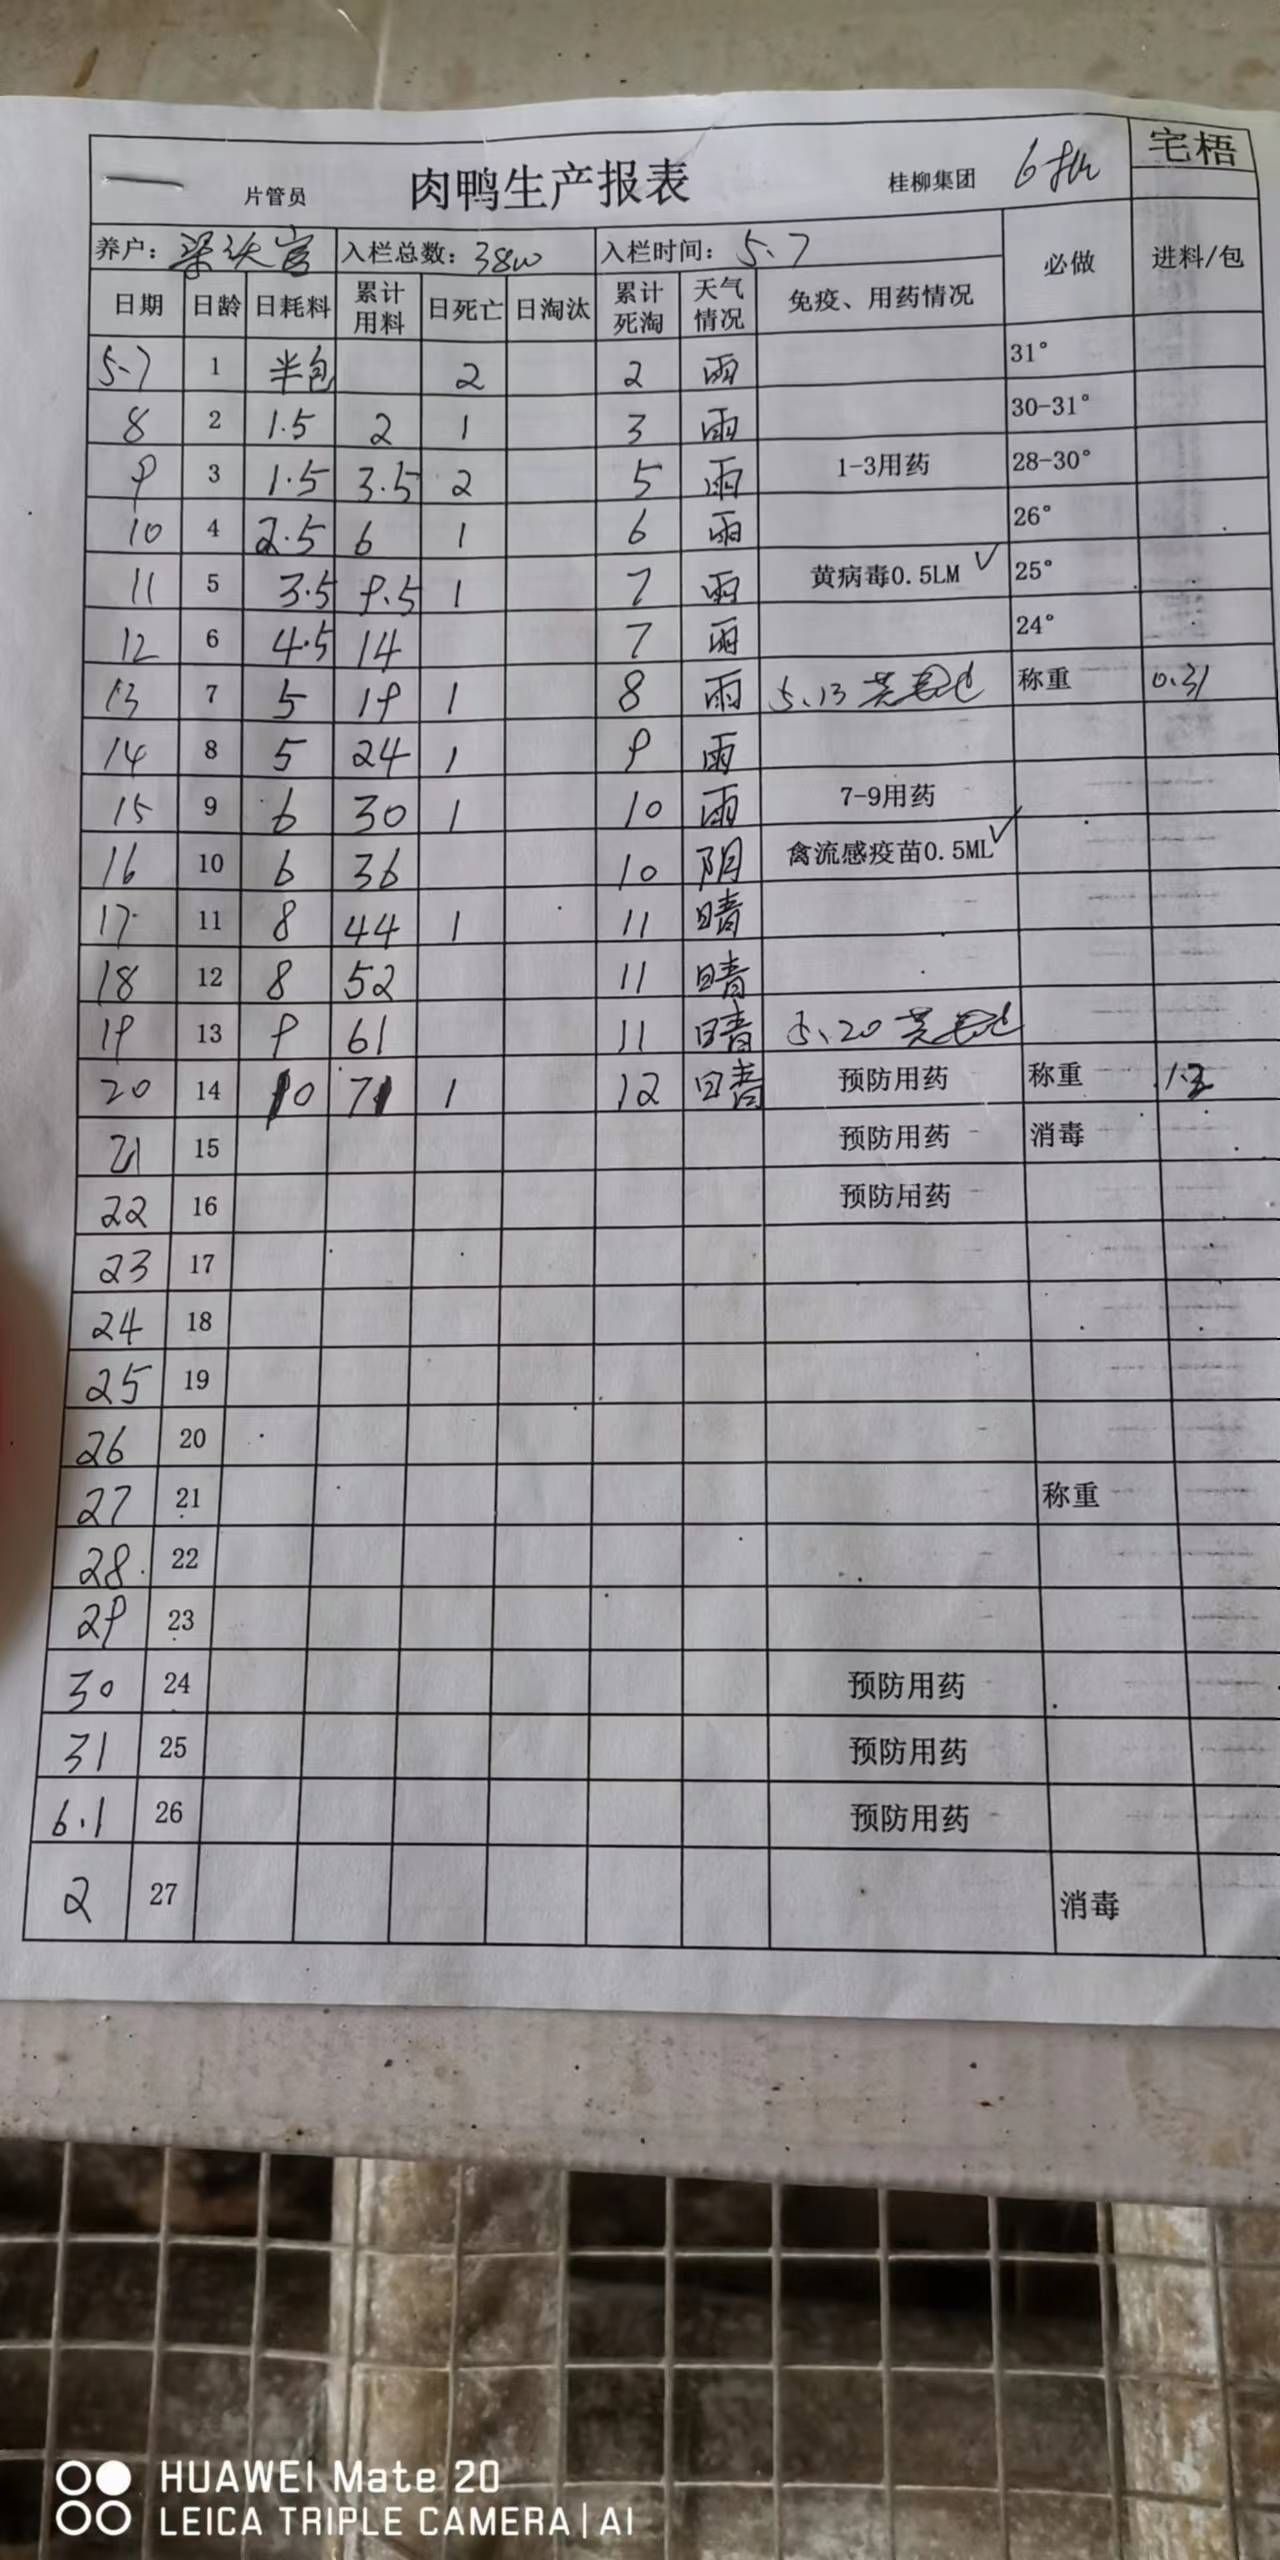 宅梧
片管员 肉鸭生产报表 桂柳集团 6批
养户: 入栏总数: 3800 入栏时间: 5.7 必做 进料/包
日期 日龄 日耗料 累计用料 日死亡 日淘汰 累计死淘 天气情况 免疫、用药情况
5.7 1 半包 2 2 雨 31°
8 2 1.5 2 1 3 雨 30-31°
9 3 1.5 3.5 2 5 雨 1-3用药 28-30°
10 4 2.5 6 1 6 雨 26°
11 5 3.5 9.5 1 7 雨 黄病毒0.5LM ✓ 25°
12 6 4.5 14 7 雨 24°
13 7 5 19 1 8 雨 5.13 称重 0.31
14 8 5 24 1 9 雨
15 9 6 30 1 10 雨 7-9用药
16 10 6 36 10 阴 禽流感疫苗0.5ML ✓
17 11 8 44 1 11 晴
18 12 8 52 11 晴
19 13 9 61 11 晴 5.20
20 14 10 71 1 12 晴 预防用药 称重
21 15 预防用药 消毒
22 16 预防用药
23 17
24 18
25 19
26 20
27 21 称重
28 22
29 23
30 24 预防用药
31 25 预防用药
6.1 26 预防用药
2 27 消毒
HUAWEI Mate 20
LEICA TRIPLE CAMERA | AI